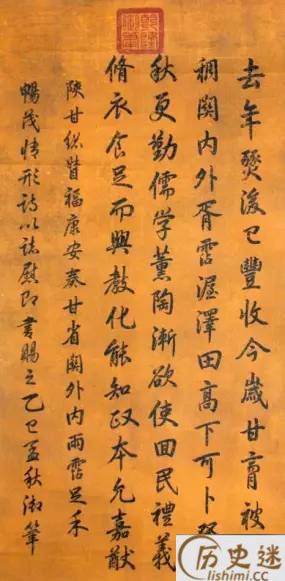 去年燹後已豐收今歲甘膏被
稠關內外胥霑渥澤田高下可卜
秋更勤儒学薰陶漸欲使回民禮義
脩衣食足而興教化能知政本允嘉猷
陝甘総督福康安奏甘省關外內雨霑足禾
暢茂情形詩以誌慰即書賜之乙巳孟秋御筆
历史迷
lishimi.cc